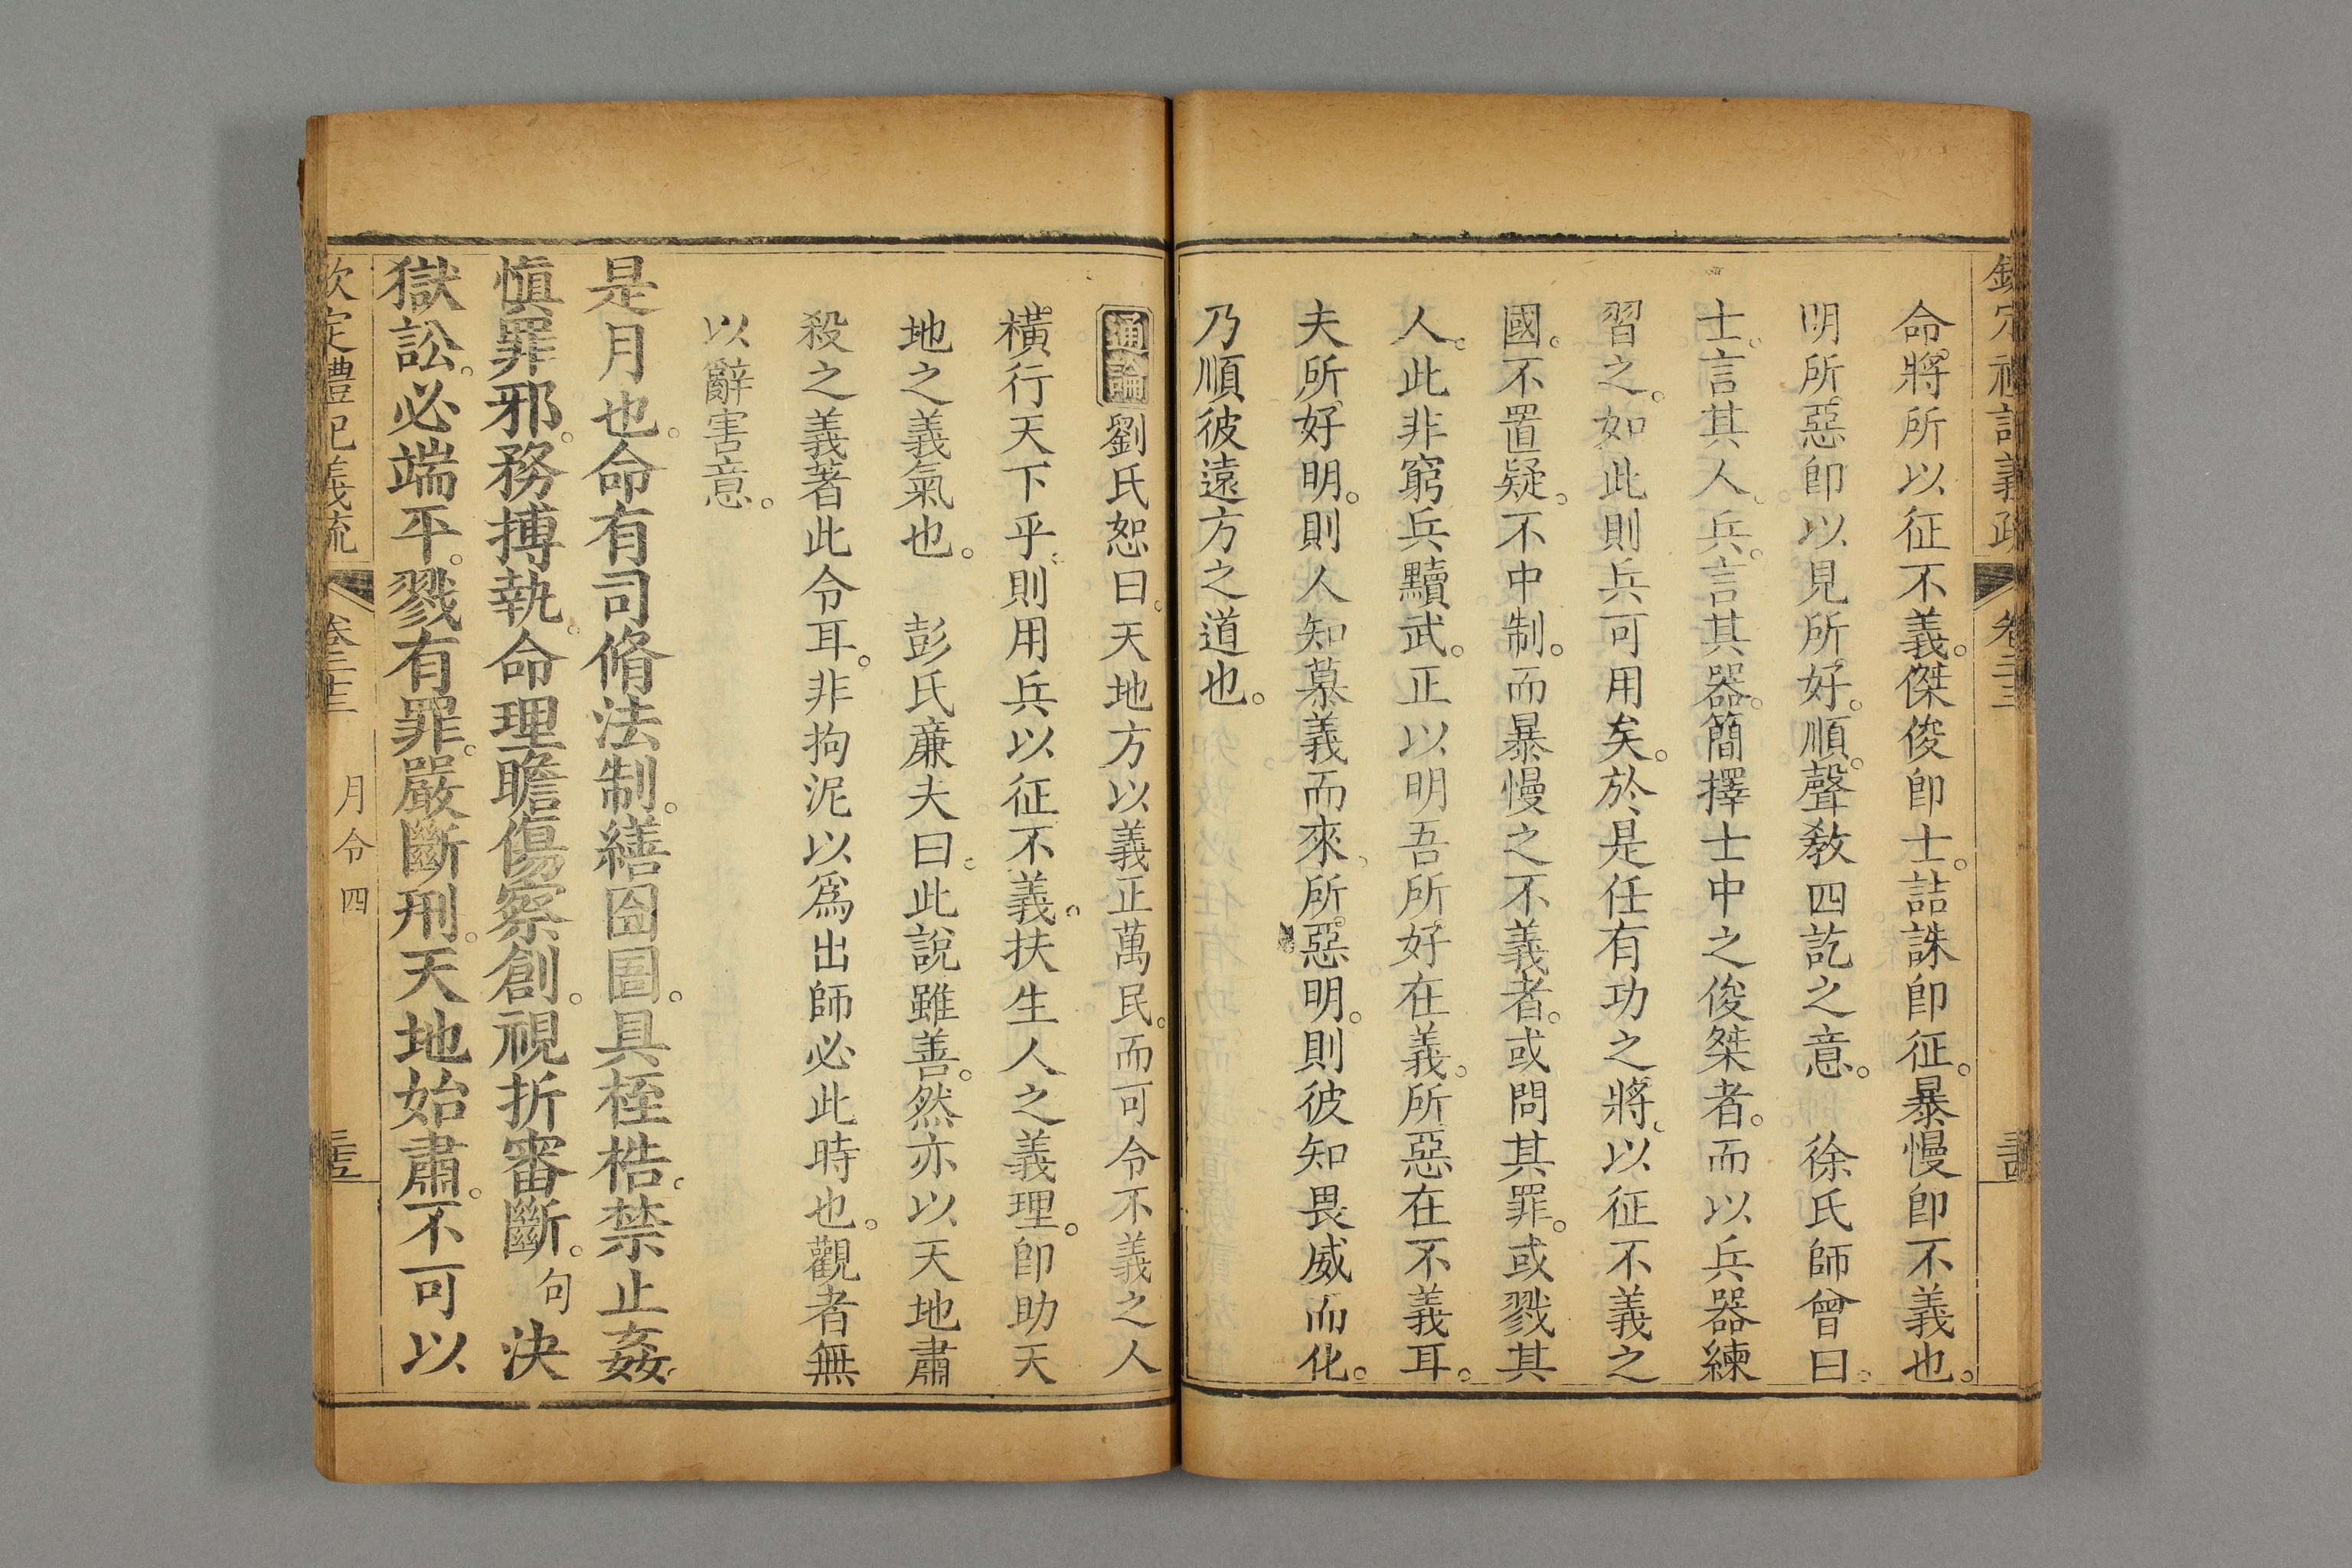 欽定禮記義疏 卷二十三
命將所以征不義。傑俊即士。詰誅即征。暴慢即不義也。
明所惡即以見所好。順。聲教四訖之意。 徐氏師曾曰。
士。言其人。兵。言其器。簡擇士中之俊桀者。而以兵器練
習之。如此則兵可用矣。於是任有功之將。以征不義之
國。不置疑。不中制。而暴慢之不義者。或問其罪。或戮其
人。此非窮兵黷武。正以明吾所好在義。所惡在不義耳。
夫所好明。則人知慕義而來。所惡明。則彼知畏威而化。
乃順彼遠方之道也。
通論 劉氏恕曰。天地方以義正萬民。而可令不義之人
橫行天下乎。則用兵以征不義。扶生人之義理。即助天
地之義氣也。 彭氏廉夫曰。此說雖善。然亦以天地肅
殺之義著此令耳。非拘泥以為出師必此時也。觀者無
以辭害意。
是月也。命有司脩法制。繕囹圄。具桎梏。禁止姦。
慎罪邪。務搏執。命理瞻傷察創。視折審斷。句決
獄訟。必端平。戮有罪。嚴斷刑。天地始肅。不可以
欽定禮記義疏 卷二十三 月令四